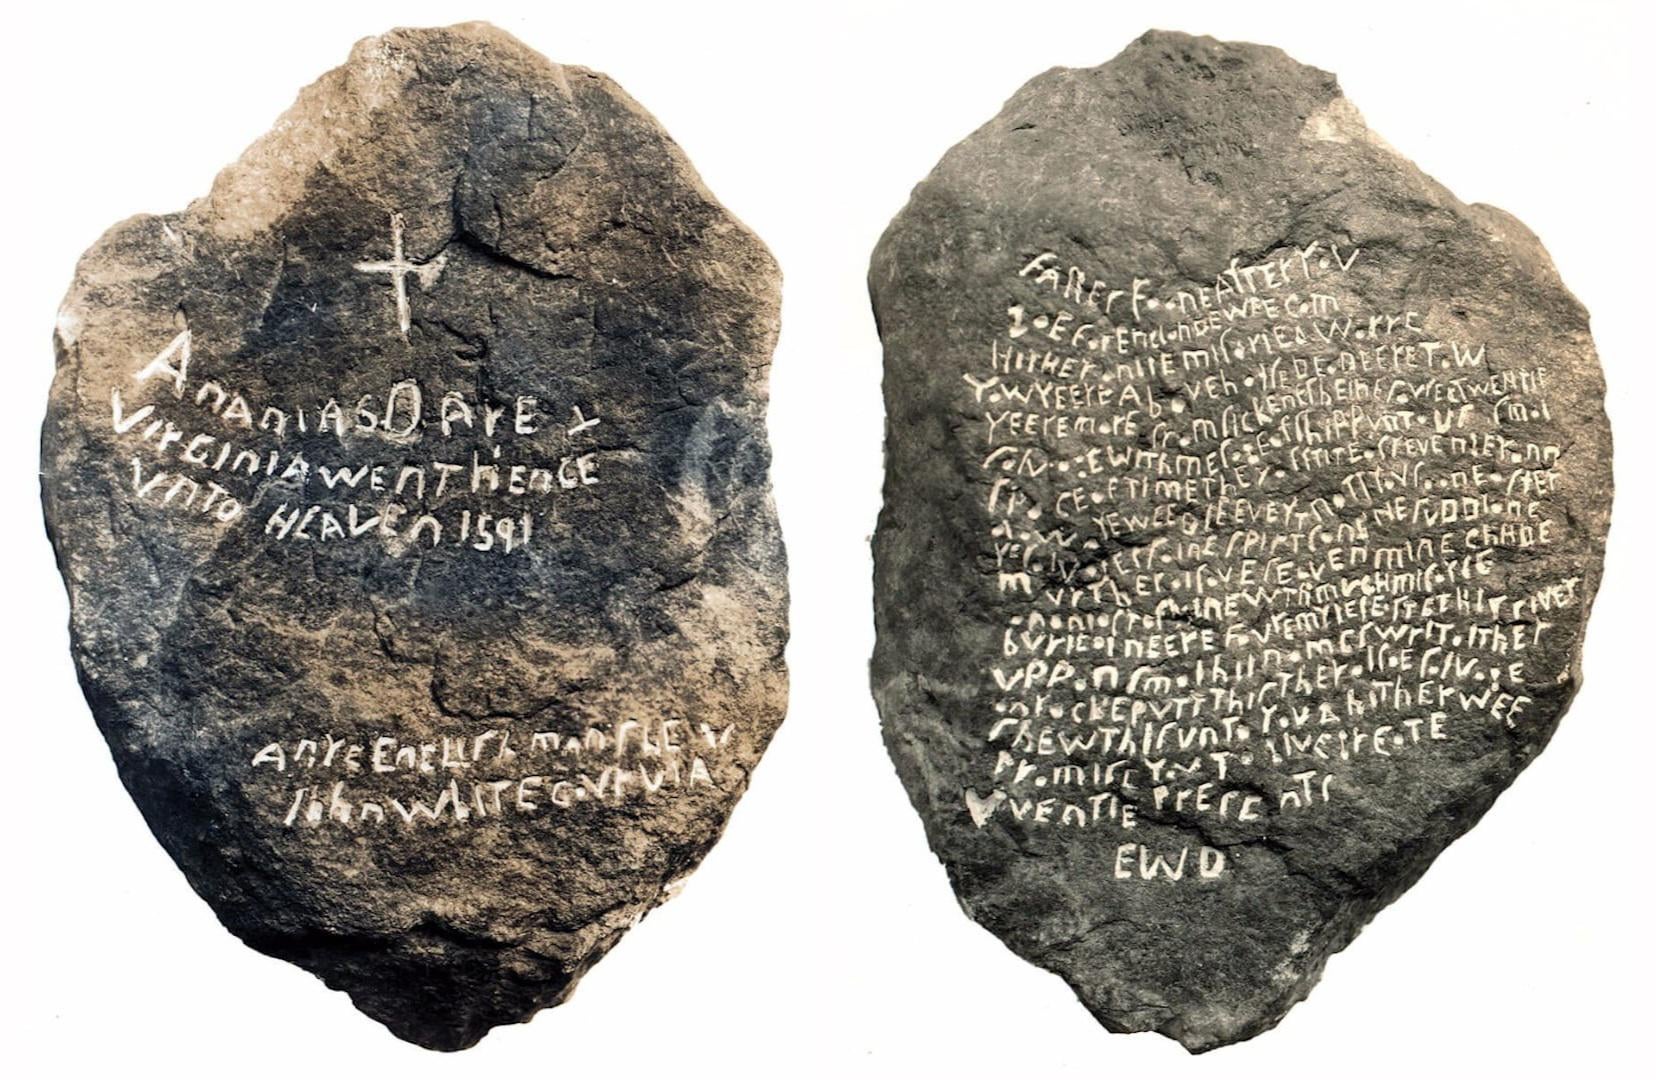 ANANIAS DARE &
VIRGINIA WENT HENCE
VNTO HEAVEN 1591
ANYE ENGLISHMAN SHEW
JOHN WHITE GOVR VIA
FATHER SOONE AFTER YOV
GOE FOR ENGLANDE WEE CAM
HITHER ONLIE MISARIE & WARRE
TOW YEERE ABOVE HALFE DEADE ERE TOW
YEERE MORE FROM SICKENES BEINE FOVRE & TWENTIE
SALVAGE WITH MESSAGE OF SHIPP VNTO VS SMAL
SPACE OF TIME THEY AFFRITE OF REVENGE RANN
AL AWAYE WEE BLEEVE YT NOTT YOV SOONE AFTER
YE SALVAGES FAINE SPIRTS ANGRIE SUDDIANE
MVRTHER AL SAVE SEAVEN MINE CHILDE
ANANIAS TO SLAINE WTH MVCH MISARIE
BVRIED AL NEERE FOVRE MYLES EASTE THIS RIVER
VPPON SMAL HIL NAMES WRIT AL THER
ON ROCKE PVTT THIS THER ALSOE SALVAGE
SHEW THIS VNTO YOV & HITHER WEE
PROMISE YOV TO GIVE GREATE
PLENTIE PRESENTS
EWD